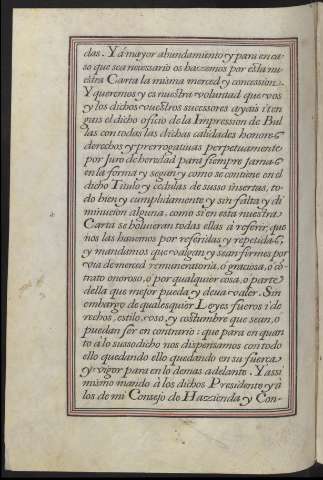 das. Y á mayor abundamiento y para en ca
so que sea necessario os hazemos por esta nu
estra Carta la misma merced y concession.
Y queremos y es nuestra voluntad que vos
y los dichos vuestros sucessores ayais i ten
gais el dicho oficio de la Impression de Bul
las con todas las dichas calidades honores
derechos y prerrogatiuas perpetuamente
por Juro de heridad para siempre jamas
en la forma y segun y como se contiene en el
dicho Titulo y cedulas de susso insertas, to
do bien y cumplidamente y sin falta y di
minucion alguna. como si en esta nuestra
Carta se holuieran todas ellas à referir, que
nos las hauemos por referidas y repetidas,
y mandamos que valgan y sean firmes por
via de merced remuneratoria, o graciosa, o có
trato onoroso, o por qualquier cosa, o parte
della que mejor pueda y deua valer. Sin
embargo de qualesquier Leyes fueros i de
rechos, estilo, vso, y costumbre que sean, o
puedan ser en contrario: que para en quan
to à lo susso dicho nos dispensamos con todo
ello quedando ello quedando en su fuerça
y vigor para en lo demas adelante. Y assi
mismo mando à los dichos Presidente y à
los de mi Consejo de Hazzienda y Con-